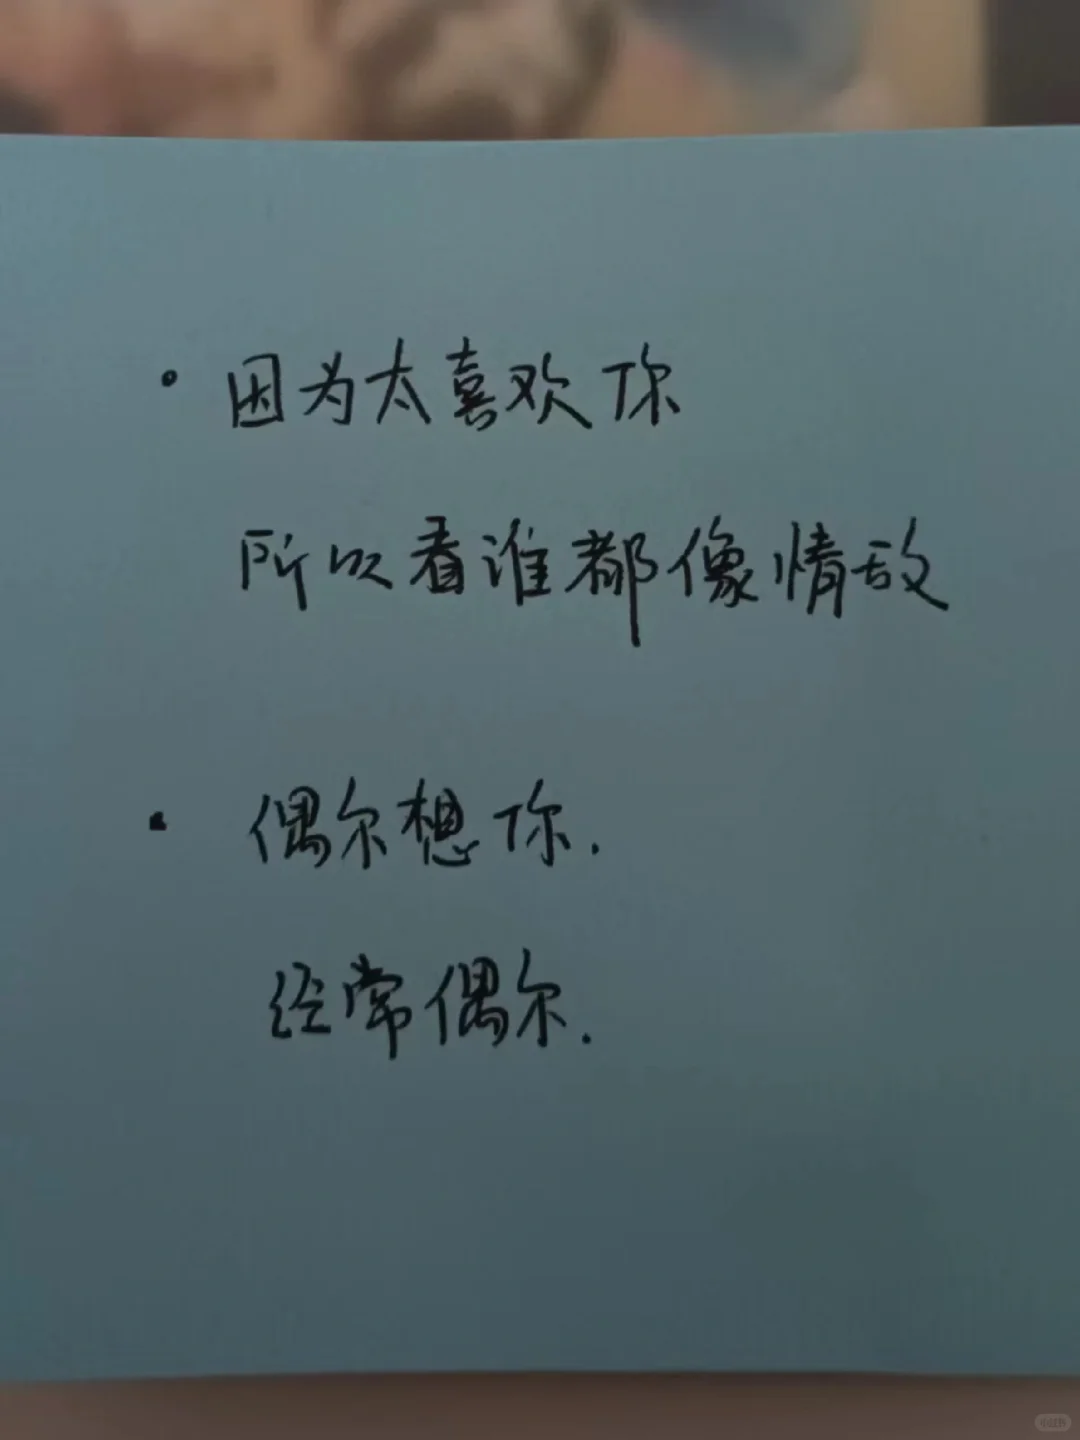 · 因为太喜欢你
所以看谁都像情敌
· 偶尔想你.
经常偶尔.
小红书